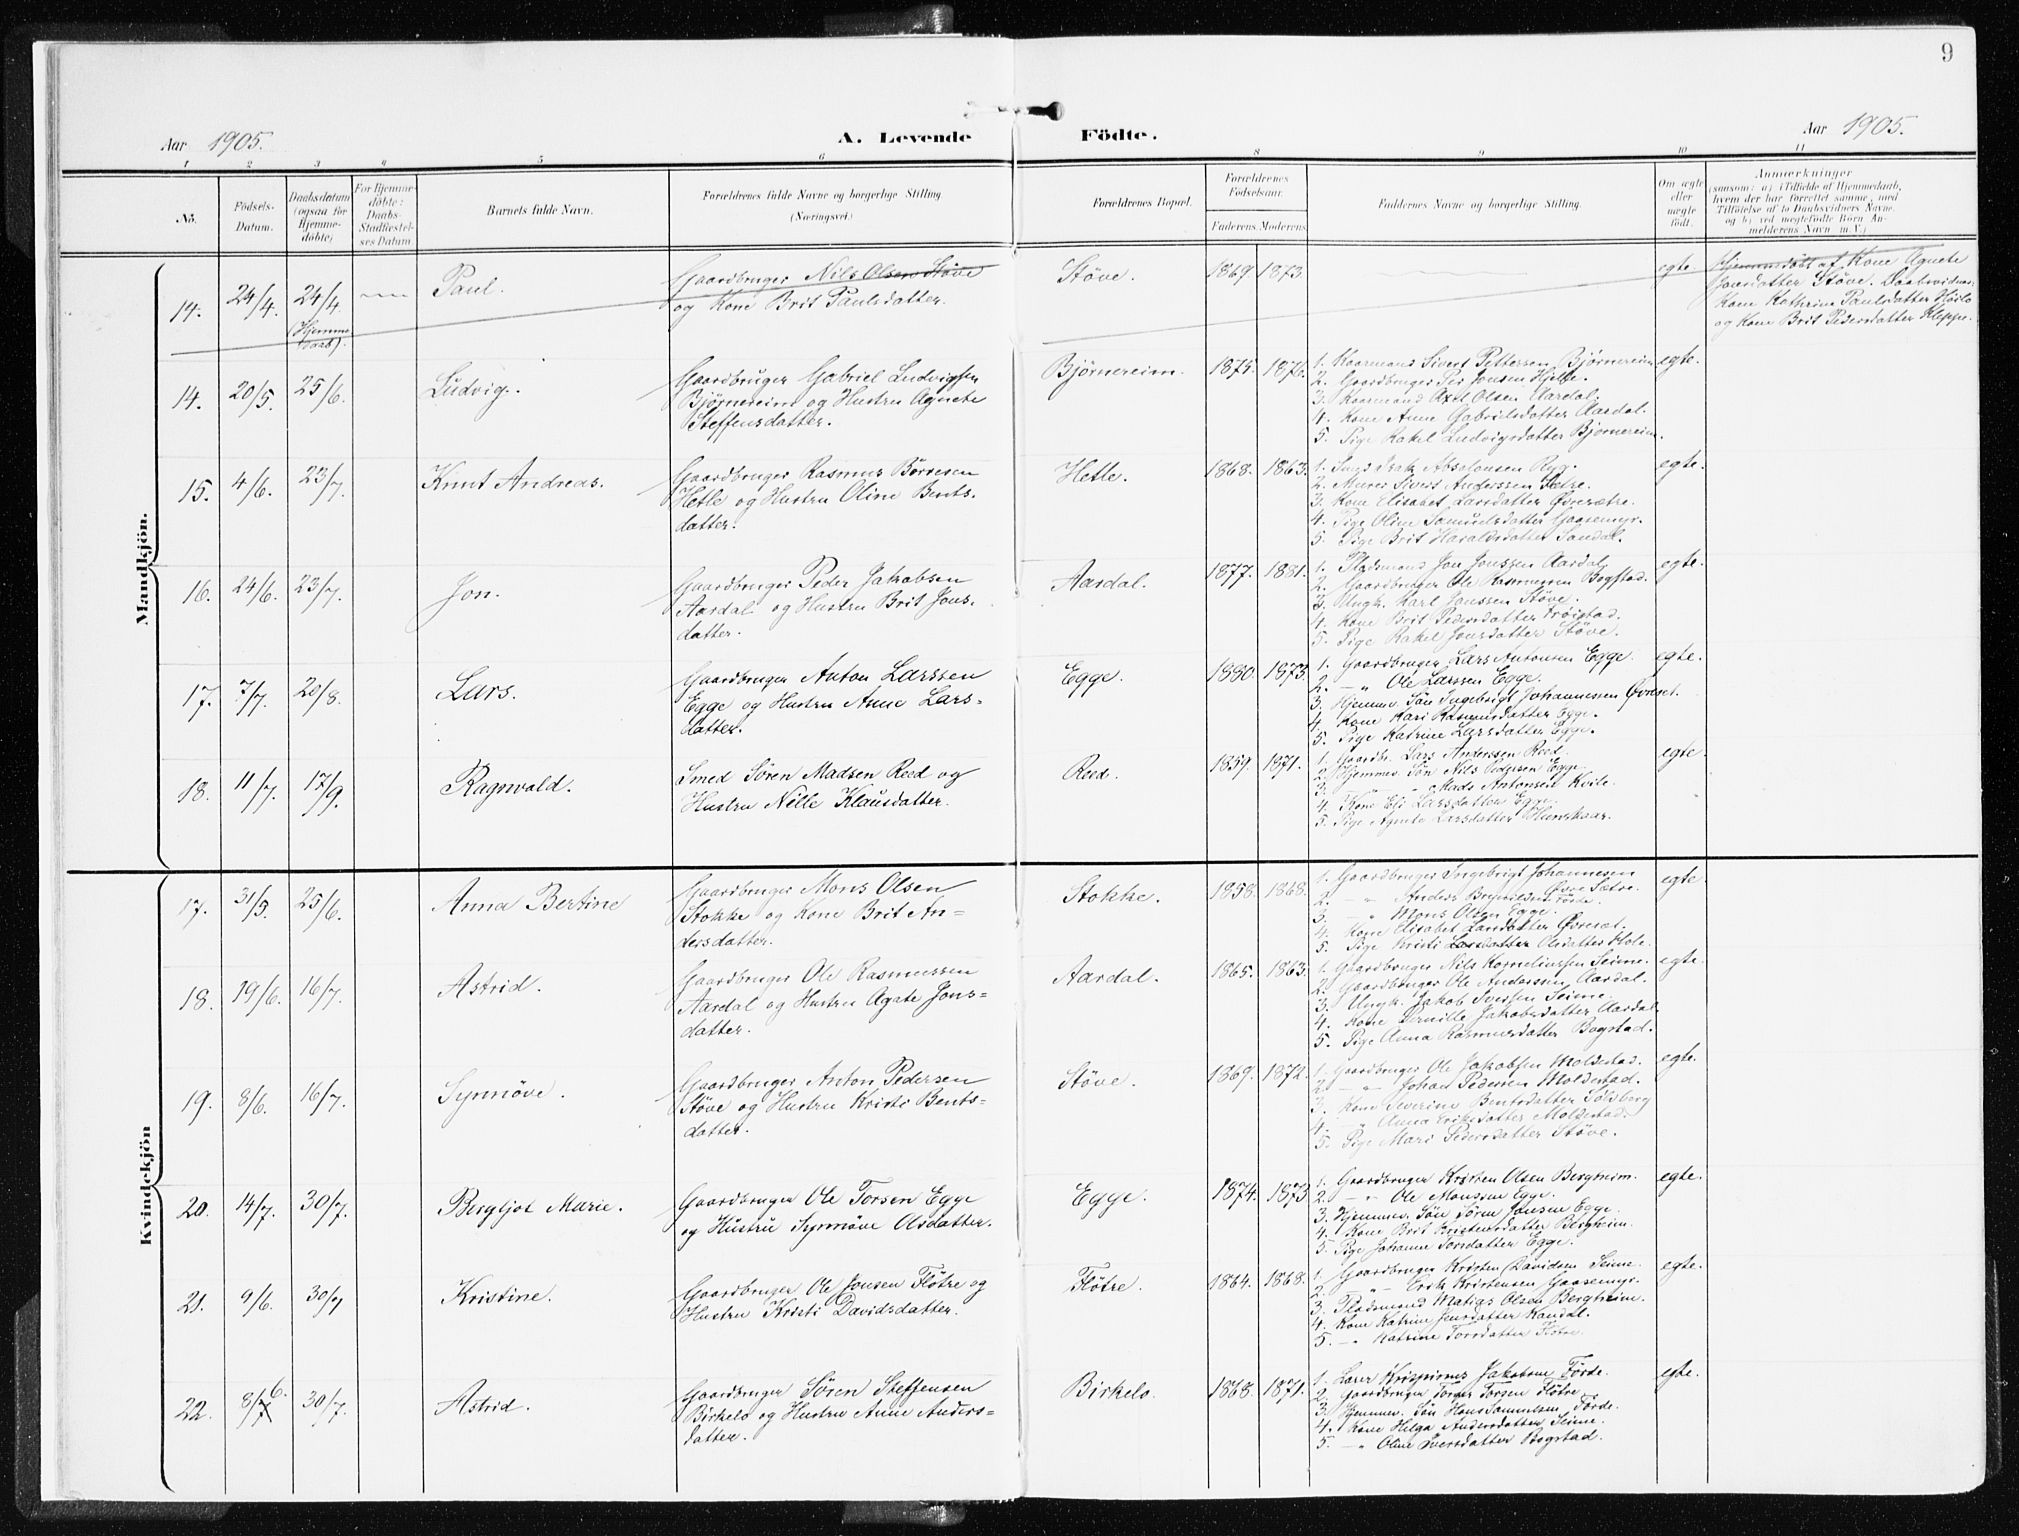 9
Aar 1905.
A. Levende Födte.
Aar 1905.
1 2 3 4 5 6 8 9 10 11
No.
Födsels-
Datum.
Daabsdatum
(ogsaa for
Hjemme-
döbte)
For Hjemme-
döbte:
Daabs-
Stadfæstel-
ses Datum
Barnets fulde Navn.
Forældrenes fulde Navne og borgerlige Stilling
(Næringsvei.)
Forældrenes Bopæl.
Forældrenes
Födselsaar.
Faderens. Moderens.
Faddernes Navne og borgerlige Stilling.
Om ægte
eller
uægte
født.
Anmærkninger
(saasom: a) i Tilfælde af Hjemmedaab,
hvem der har forrettet samme, med
Tilföielse af to Daabsvidners Navne.
og b) ved uægtefödte Börn An-
melderens Navn m. V.)
Mandkjön.
14. 24/4. 24/4. (Hjemmedaab). Paul.
Gaardbruger Nils Olsen Støve
og Kone Brit Paulsdatter.
Støve. 1869 1873. egte.
Hjemmedøbt af Kone Agnete
Jonsdatter Støve. Daabsvidner
Kone Kathrine Paulsdatter
og Kone Brit Pedersdatter Kleppe.
14. 20/5. 25/6. Ludvig.
Gaardbruger Gabriel Ludvigsen
Bjørnereim og Hustru Agnete
Steffensdatter.
Bjørnereim. 1875. 1876. egte.
1. Kaarmand Sivert Pettersen Bjørnereim
2. Gaardbruger Per Jonsen Hjelle.
3. Kaarmand Axel Olsen Aardal.
4. Kone Anne Gabrielsdatter Aardal.
5. Pige Rakel Ludvigsdatter Bjørnereim.
15. 4/6. 23/7. Knut Andreas.
Gaardbruger Rasmus Børresen
Hetle og Hustru Oline Bents-
datter.
Hetle. 1868. 1863. egte.
1. Isak Absalonsen Ryg.
2. Murer Sivert Anderssen Sætre.
3. Kone Elisabet Larsdatter Øvresætre.
4. Pige Oline Samuelsdatter Gaasemyr.
5. Pige Brit Haraldsdatter Sandal.
16. 24/6. 23/7. Jon.
Gaardbruger Peder Jakobsen
Aardal og Hustru Brit Jons-
datter.
Aardal. 1877. 1881. egte.
1. Pladsmand Jon Jonssen Aardal
2. Gaardbruger Ole Rasmussen Bogstad.
3. Ungk. Karl Jonssen Støve.
4. Kone Brit Pedersdatter
5. Pige Rakel Jonsdatter Støve.
17. 7/7. 20/8. Lars.
Gaardbruger Anton Larssen
Egge og Hustru Anne Lars-
datter.
Egge. 1880. 1873. egte.
1. Gaardbruger Lars Antonsen Egge.
2. — " Ole Larssen Egge.
3. Hjemmev. Søn Ingebrigt Johannessen Øvreset.
4. Kone Kari Rasmusdatter Egge.
5. Pige Katrine Larsdatter Egge.
18. 11/7. 17/9. Ragnvald.
Smed Søren Madsen Reed og
Hustru Nille Klausdatter.
Reed. 1859. 1871. egte.
1. Gaardbr. Lars Anderssen Reed.
2. Hjemmev. Søn Nils Pedersen Egge.
3. " " Mads Antonsen Kvile.
4. Kone Eli Larsdatter Egge.
5. Pige Agnete Larsdatter
Kvindekjön
17. 31/5. 25/6. Anna Bertine
Gaardbruger Mons Olsen
Stokke og Kone Brit An-
dersdatter.
Stokke. 1858. 1868. egte.
1. Gaardbruger Ingebrigt Johannesen
Øvre Sætre.
2. — " Anders Brynildsen Førde.
3. — " Mons Olsen Egge.
4. Kone Elisabet Larsdatter Øvreset.
5. Pige Kristi Larsdatter Olsdatter
18. 19/6. 16/7. Astrid.
Gaardbruger Ole Rasmussen
Aardal og Hustru Agate Jons-
datter.
Aardal. 1865. 1863. egte.
1. Gaardbruger Nils Korneliussen Seime.
2. Gaardbruger Ole Anderssen Aardal.
3. Ungk. Jakob Iversen Seime.
4. Kone Pernille Jakobsdatter Aardal.
5. Pige Anna Rasmusdatter Bogstad.
19. 8/6. 16/7. Synnøve.
Gaardbruger Anton Pedersen
Støve og Hustru Kristi Bents-
datter.
Støve. 1869. 1872. egte.
1. Gaardbruger Ole Jakobsen Moldestad.
2. — " Johan Pedersen Moldestad.
3. Kone Severine Bentsdatter Solsberg
4. — " Anna Eriksdatter Moldestad.
5. Pige Mari Pedersdatter Støve.
20. 14/7. 30/7. Bergljot Marie.
Gaardbruger Ole Torsen Egge
og Hustru Synnøve Olsdatter.
Egge. 1874. 1873 egte.
1. Gaardbruger Kristen Olsen Bergheim.
2. — " Ole Monssen Egge.
3. Hjemmev. Søn Søren Jonsen Egge.
4. Kone Brit Kristensdatter Bergheim.
5. Pige Johanne Torsdatter Egge.
21. 9/6. 30/7 Kristine.
Gaardbruger Ole Jonsen Fløtre og
Hustru Kristi Davidsdatter.
Fløtre. 1864. 1868. egte.
1. Gaardbruger Kristen Davidsen Seime.
2. — " Erik Kristensen Gaasemyr.
3. Pladsmand Matias Olsen Bergheim.
4. Kone Katrine Jensdatter Kandal.
5. — " Katrine Torsdatter Fløtre.
22. 8/7 6. 30/7. Astrid.
Gaardbruger Søren Steffensen
Birkelo og Hustru Anne Anders-
datter.
Birkelo. 1868. 1871. egte.
1. Lærer Krispinus Jakobsen Førde.
2. Gaardbruger Torger Torsen Fløtre.
3. Hjemmev. Søn Hans Samuelsen Førde.
4. Kone Helga Andersdatter Seime.
5. — " Oline Iversdatter Bogstad.